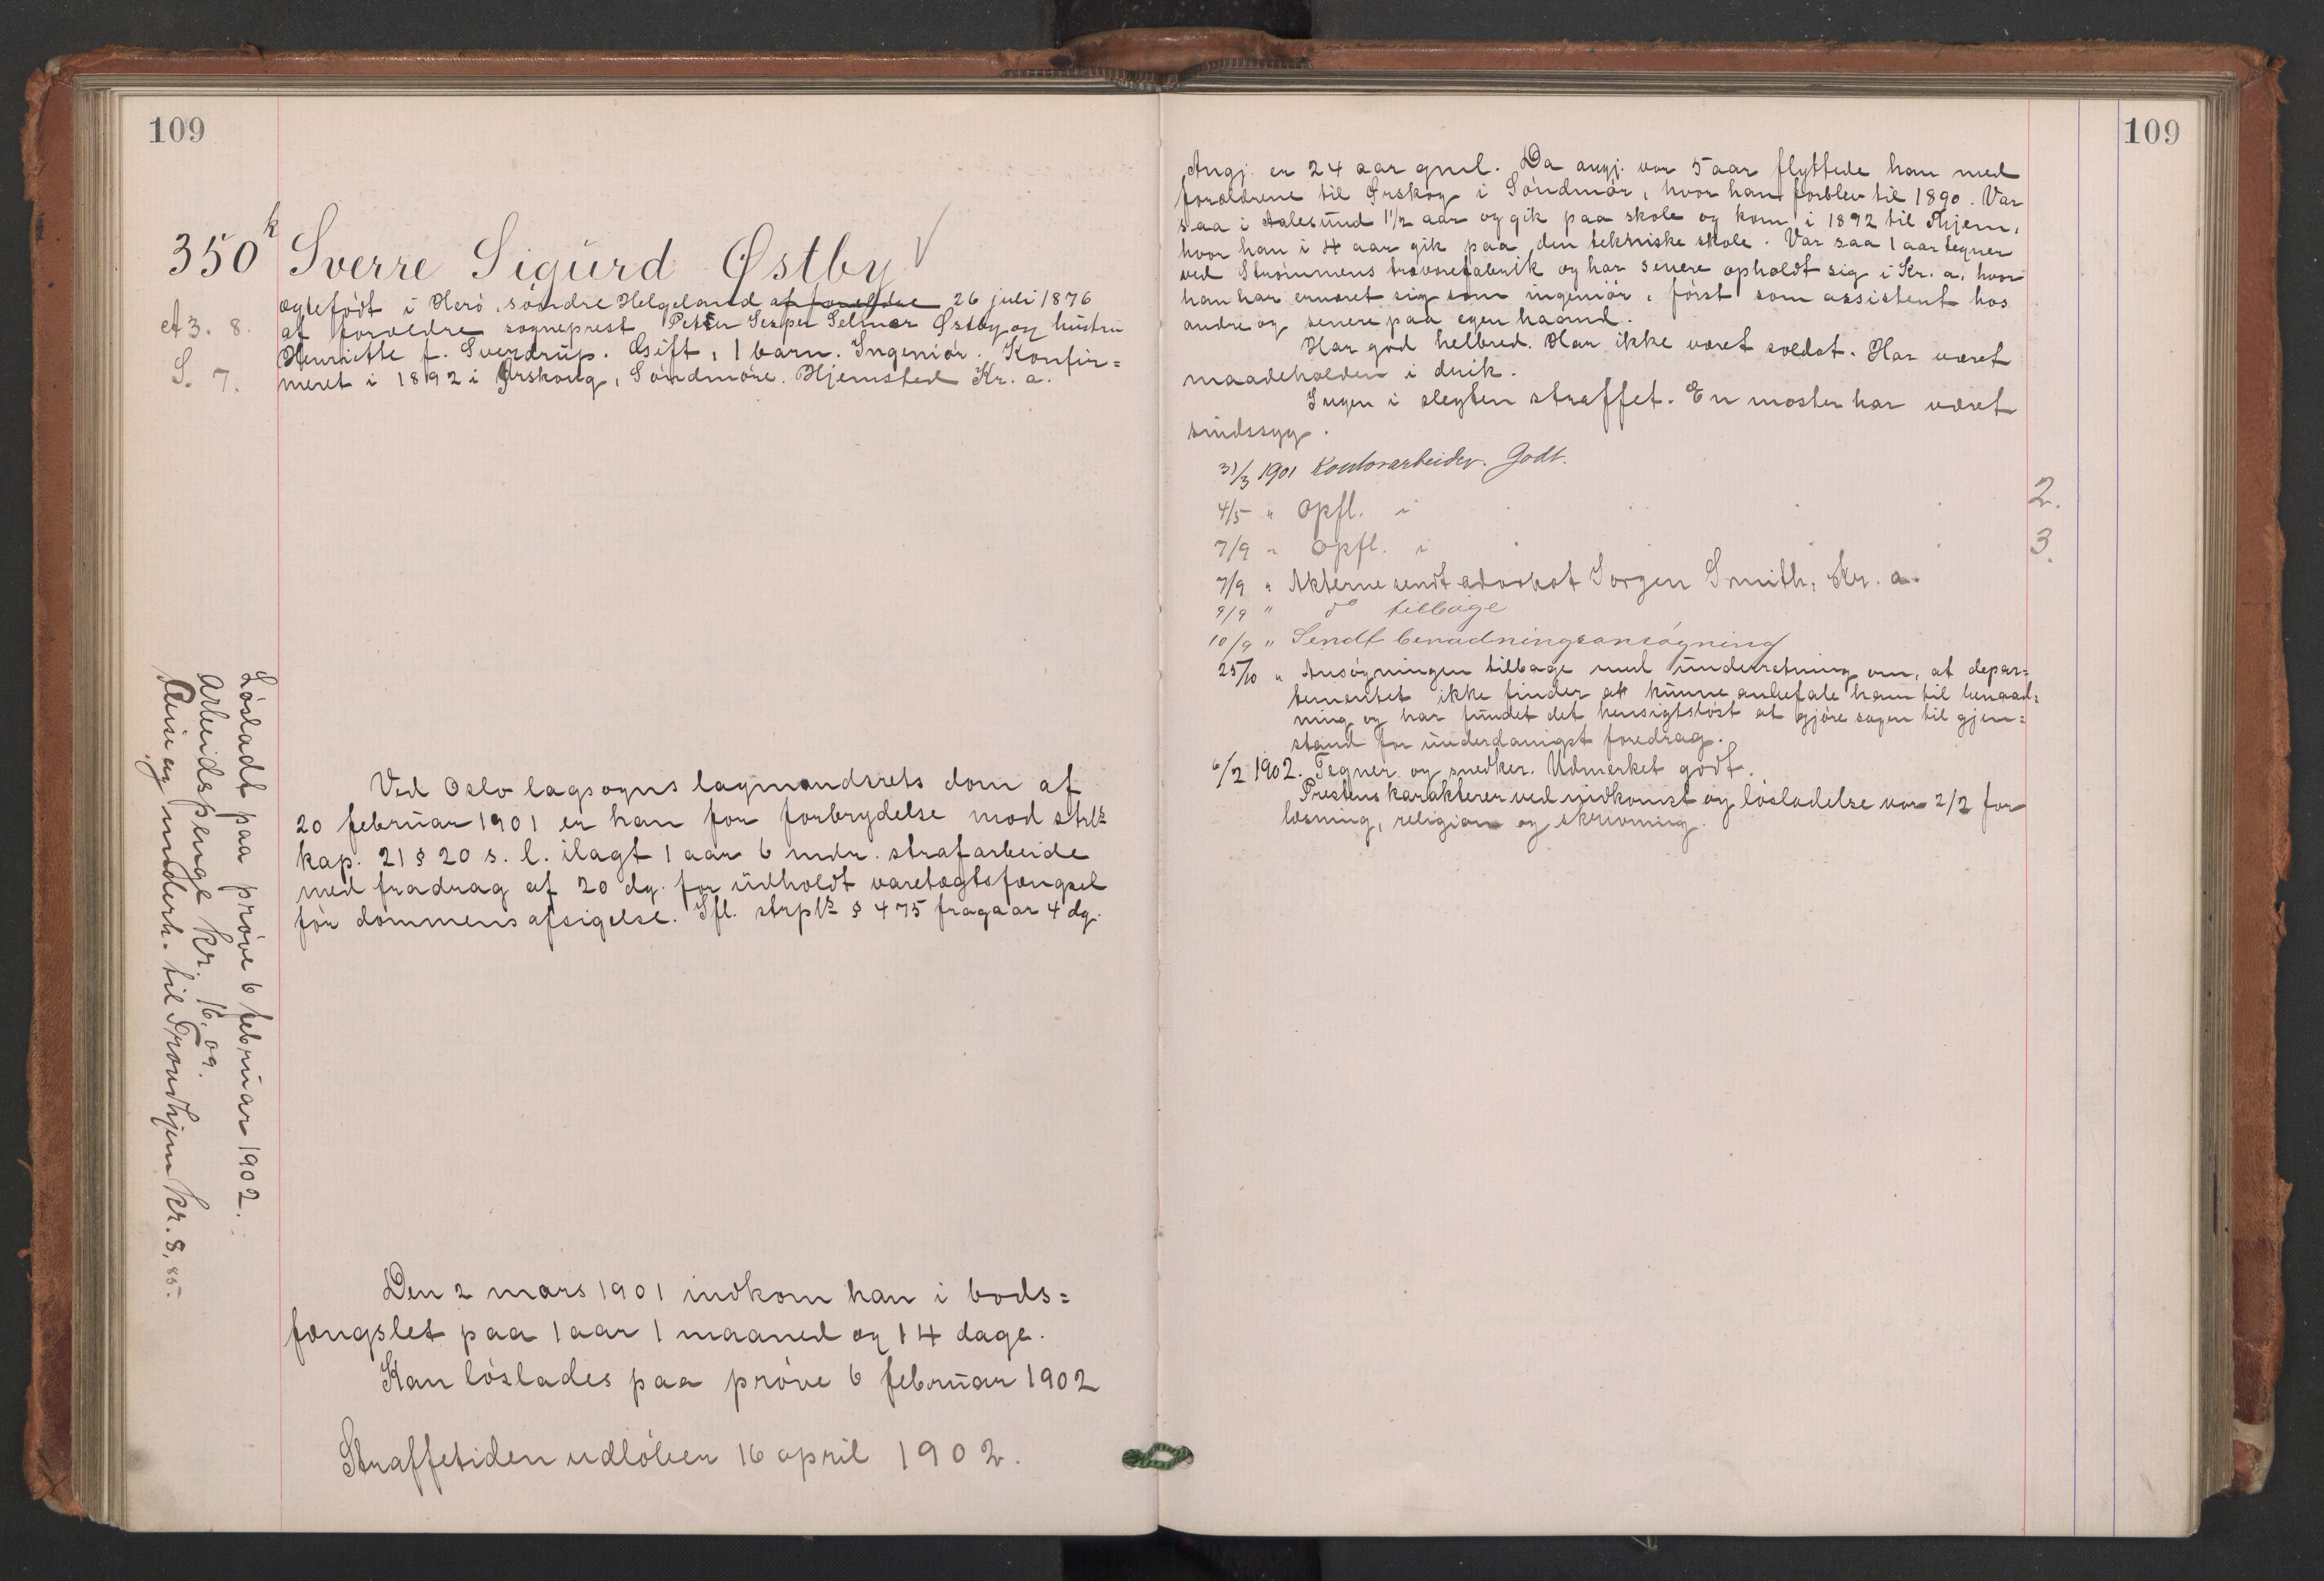 109
350 k Sverre Sigurd Østby
A 3. 8.
S. 7.
ægtefødt i Herö, söndre Helgeland af forældre 26 juli 1876
af forældre sogneprest Petter Jesper Selmer Østby og hustru
Henriette f. Sverdrup. Gift, 1 barn. Ingeniör. Konfir=
meret i 1892 i Ørskoug, Söndmöre. Hjemsted Kr. a.
Lösladt paa pröve 6 februar 1902.
Arbeidspenge kr. 16.09.
Reise og underh. til Trondhjem kr. 8,85.
Ved Oslo lagsogns lagmandsrets dom af
20 februar 1901 er han for forbrydelse mod strlk
kap. 21 § 20 s. l. ilagt 1 aar 6 mdr. strafarbeide
med fradrag af 20 dg. for udholdt varetægtsfængsel
för dommens afsigelse. Ifl. strplk § 475 fragaar 4 dg.
Den 2 mars 1901 indkom han i bods=
fængslet paa 1 aar 1 maaned og 14 dage.
Kan löslades paa pröve 6 februar 1902
Straffetiden udlöber 16 april 1902.
109
Angj. er 24 aar gml. Da angj. var 5 aar flyttede han med
forældrene til Ørskog i Söndmör, hvor han forblev til 1890. Var
saa i Aalesund 1 1/2 aar og gik paa skole og kom i 1892 til Thjem,
hvor han i 4 aar gik paa den tekniske skole. Var saa 1 aar tegner
ved Strömmens trævarefabrik og har senere opholdt sig i Kr. a. hvor
han har ernæret sig som ingeniör, först som assistent hos
andre og senere paa egen haand.
Har god helbred. Har ikke været soldat. Har været
maadeholden i drik.
Ingen i slegten straffet. En moster har været
sindssyg.
31/3 1901 Kontorarbeider. Godt.
4/5 " Opfl. i 2.
7/9 " Opfl. i 3.
7/9 " Akterne sendt advokat Jørgen Smith, Kr. a.
9/9 " do tilbage
10/9 " Sendt benadningsansögning
25/10 " Ansögningen tilbage med underretning om, at depar=
tementet ikke finder at kunne anbefale ham til benaad=
ning og har fundet det hensigtslöst at gjöre sagen til gjen=
stand for underdanigst foredrag.
6/2 1902. Tegner og snedker. Udmerket godt.
Prestens karakterer ved indkomst og lösladelse var 2/2 for
læsning, religion og skrivning.